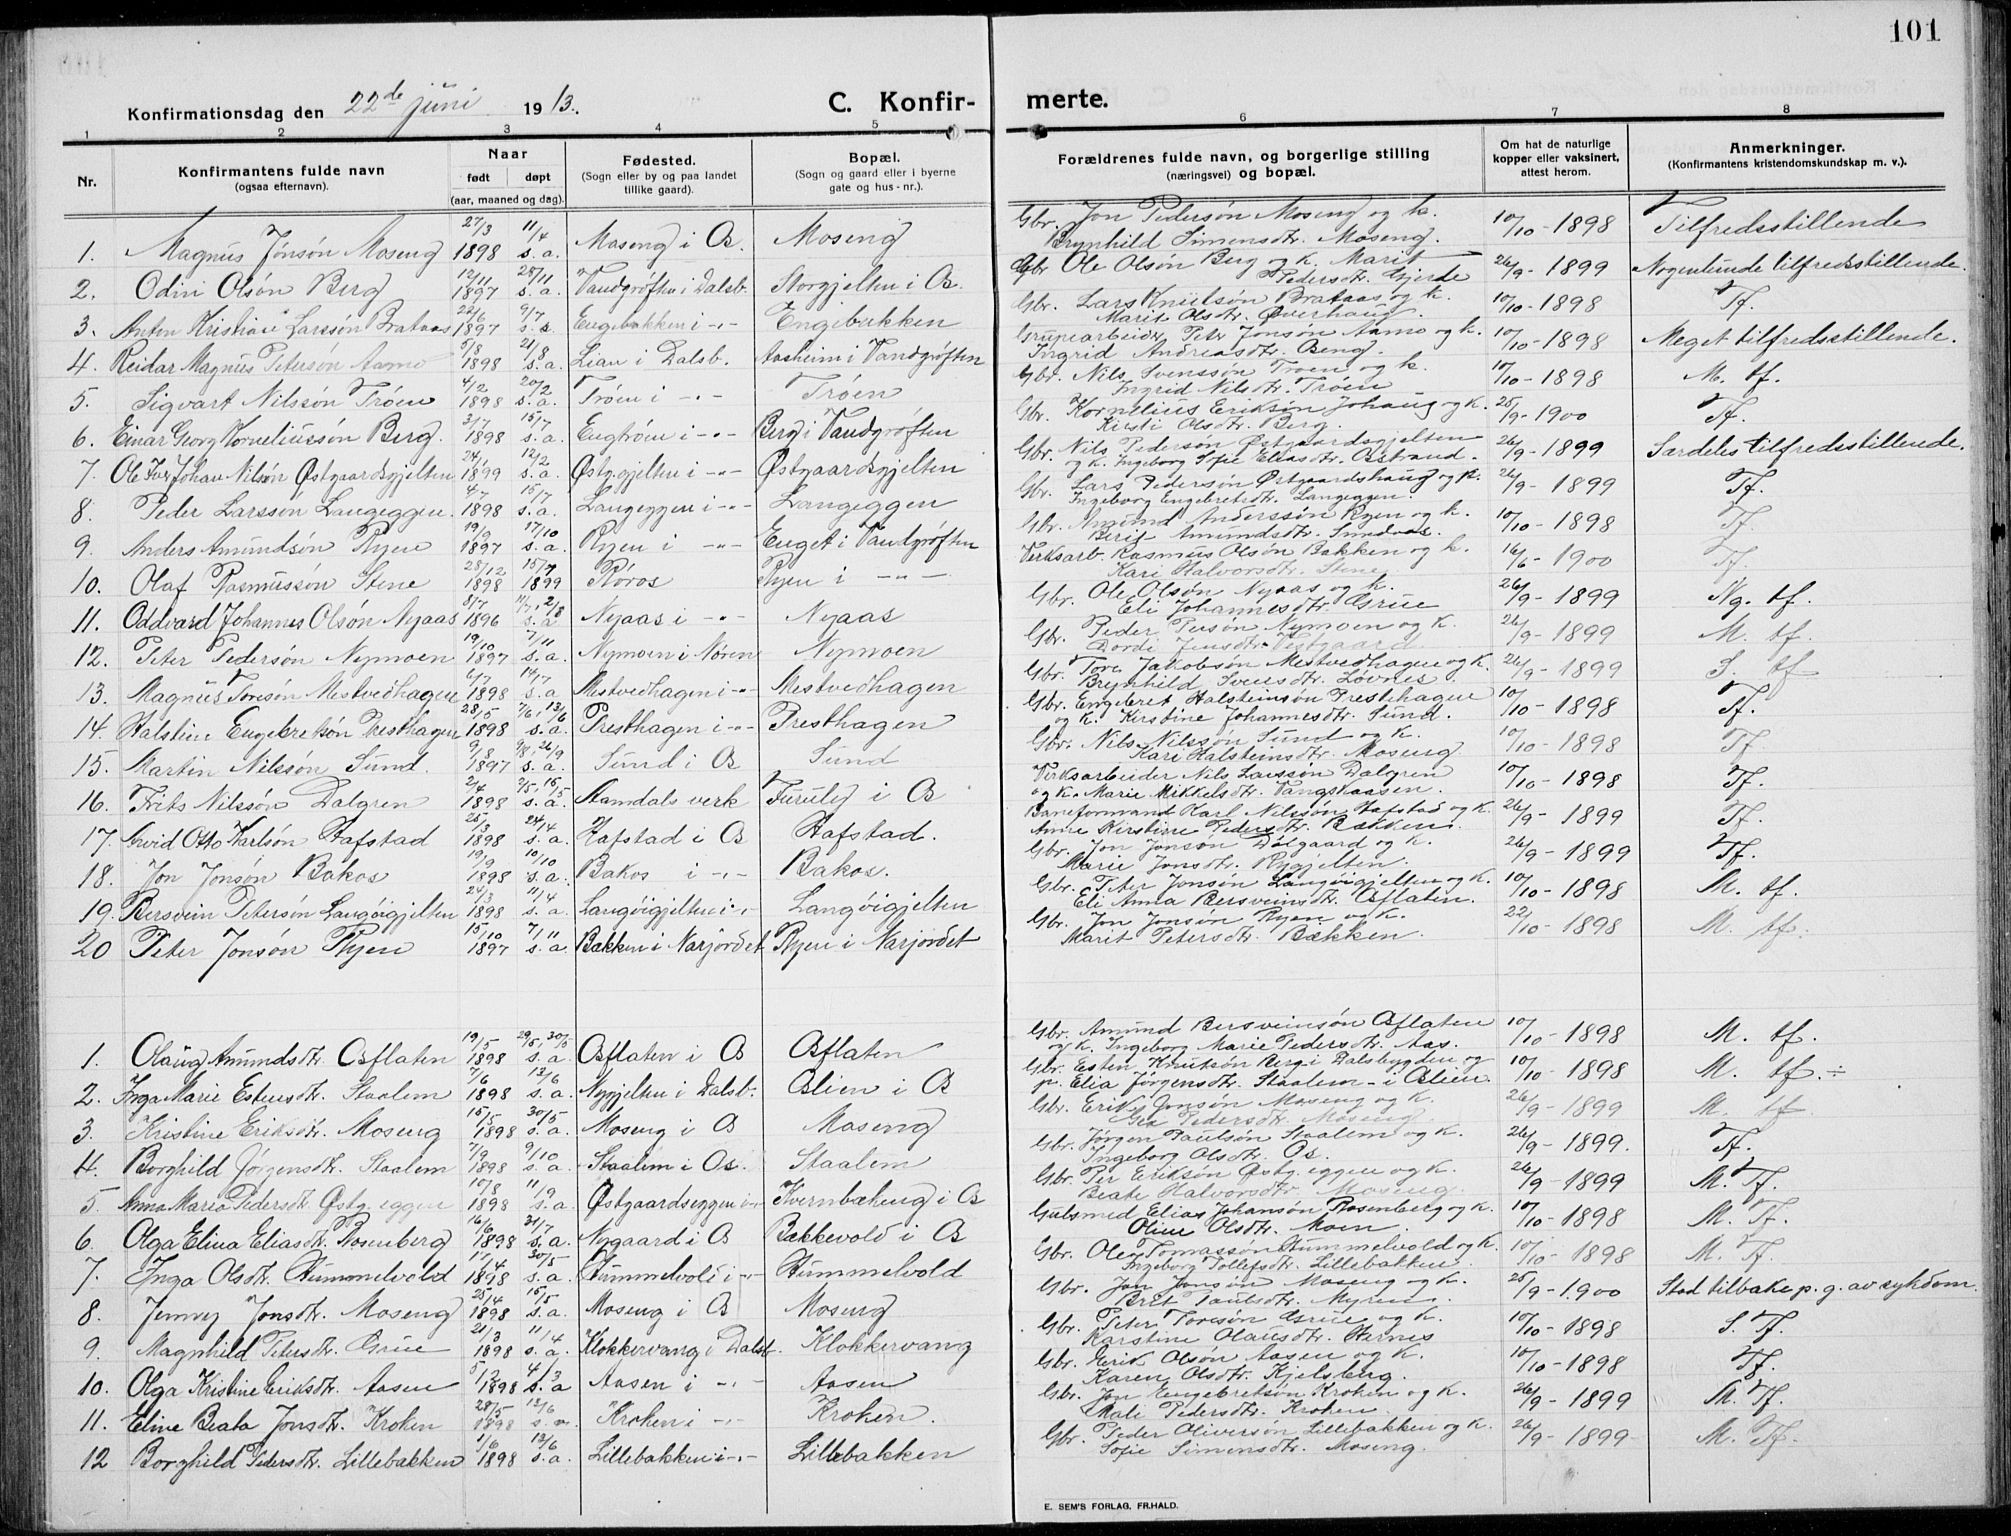 101
Konfirmationsdag den 22de juni 1913.
C. Konfirmerte.
1 2 3 4 5 6 7 8
Nr. Konfirmantens fulde navn (ogsaa efternavn). Naar født døpt (aar, maaned og dag). Fødested. (Sogn eller by og paa landet tillike gaard). Bopæl. (Sogn og gaard eller i byerne gate og hus-nr.). Forældrenes fulde navn, og borgerlige stilling (næringsvei) og bopæl. Om hat de naturlige kopper eller vaksinert, attest herom. Anmerkninger. (Konfirmantens kristendomskundskap m. v.).
1. Magnus Jonsøn Moseng 27/3 1898 11/4 s.a. Moseng i Os. Moseng Gbr. Jon Pedersøn Moseng og k. Brynhild Simensdtr. Moseng. 10/10-1898 Tilfredsstillende
2. Odin Olsøn Berg 12/11 1897 28/11 s.a. Vandgrøften i Dalsb. Storgjelten i Os. Gbr Ole Olsøn Berg og k. Marit Pedersdtr. Gjerde 26/9-1899 Nogenlunde tilfredsstillende.
3. Anton Kristian Larssøn Brataas 22/6 1897 9/7 s.a. Engebakken i -"- Engebakken Gbr. Lars Knutsøn Brataas og k. Marit Olsdtr. Øverhaug 10/10-1898 Tf.
4. Reidar Magnus Petersøn Aamo 5/8 1898 21/8 s.a. Lian i Dalsb. Aasheim i Vandgrøften Grubearbeider Peter Jonsøn Aamo og k. Ingrid Andreasdtr. Beng. 10/10-1898 Meget tilfredsstillende.
5. Sigvart Nilssøn Trøen 4/2 1898 20/2 s.a. Trøen i -"- Trøen Gbr. Nils Svenssøn Trøen og k. Ingrid Nilsdtr. Trøen 10/10-1898 M. tf.
6. Einar Georg Korneliussøn Berg. 3/7 1898 15/7 s.a. Engtrøen i -"- Berg i Vandgrøften Gbr. Kornelius Eriksøn Johaug og k. Kirsti Olsdtr. Berg. 25/9-1900 Tf.
7. Ole Iver Johan Nilsøn Østgaardsgjelten 24/1 1899 12/2 s.a. Østg.gjelten i -"- Østgaardsgjelten Gbr. Nils Pedersøn Østgaardsgjelten og k. Ingeborg Sofie Eliasdtr. Østrand. 26/9-1899 Særdeles tilfredsstillende.
8. Peder Larssøn Langeggen. 4/7 1898 15/7 s.a. Langeggen i -"- Langeggen Gbr. Lars Pedersøn Østgaardshaug og k. Ingeborg Engebretsdtr. Langeggen. 26/9-1899 Tf.
9. Anders Amundsøn Ryen 19/9 1897 17/10 s.a. Ryen i -"- Enget i Vandgrøften Gbr. Amund Anderssøn Ryen og k. Berit Amundsdtr. 10/10-1898 Tf.
10. Olaf Rasmussøn Stene 28/12 1898 15/7 1899 Røros Ryen i -"- Verksarb. Rasmus Olsøn Bakken og k. Kari Halvorsdtr. Stene 16/6-1900 Tf.
11. Oddvard Johannes Olsøn Nyaas 8/7 1896 11/7, 2/8 s.a. Nyaas i -"- Nyaas Gbr. Ole Olsøn Nyaas og k. Eli Johannesdtr. Grue 26/9-1899 Ng. tf.
12. Peter Pedersøn Nymoen 19/10 1897 7/11 s.a. Nymoen i Nøren Nymoen Gbr. Peder Persøn Nymoen og k. Dordi Jensdtr. Vestgaard 26/9-1899 M. tf.
13. Magnus Toresøn Mestvedhagen 6/7 1898 14/7 s.a. Mestvedhagen i -"- Mestvedhagen Gbr. Tore Jakobsøn Mestvedhagen og k. Brynhild Svensdtr. Løvnes 26/9-1899 S. tf
14. Halstein Engebretsøn Presthagen 28/5 1898 7/6, 13/6 s.a. Presthagen i -"- Presthagen Gbr. Engebret Halsteinsøn Prestehagen og k. Kirstine Johannesdtr. Sund. 10/10-1898 Tf.
15. Martin Nilssøn Sund. 9/8 1897 9/8, 26/9 s.a. Sund i Os Sund Gbr. Nils Nilssøn Sund og k. Kari Halsteinsdtr. Moseng 10/10-1898 Tf
16. Frits Nilssøn Dalgren 2/4 1898 2/5, 15/5 s.a. Aamdals verk Furuly i Os Verksarbeider Nils Larssøn Dalgren og k. Marie Mikkelsdtr. Vangskaasen. 10/10-1898 Tf.
17. Arvid Otto Karlsøn Hafstad 25/3 1898 24/4 s.a. Hafstad i Os Hafstad. Baneformand Karl Nilssøn Hafstad og k. Anne Kirstine Pedersdtr. Bækken. 26/9-1899 Tf.
18. Jon Jonsøn Bakos 19/9 1898 10/10 s.a. Bakos i -"- Bakos. Gbr. Jon Jonsøn Dølgaard og k. Marie Jonsdtr. Nygjelten. 26/9-1899 Tf.
19. Bersvein Petersøn Langøigjelten 24/3 1898 11/4 s.a. Langøigjelten i -"- Langøigjelten Gbr. Peter Jonsøn Langøigjelten og k. Eli Anna Bersveinsdtr. Osflaten. 10/10-1898 M. tf.
20 Peter Jonsøn Ryen 15/10 1897 7/11 s.a. Bækken i Narjordet Ryen i Narjordet Gbr. Jon Jonsøn Ryen og k. Marit Petersdtr. Bækken. 22/10-1898 M. tf.
1. Olaug Amundsdtr. Osflaten 19/5 1898 29/5, 30/5 s.a. Osflaten i Os Osflaten Gbr. Amund Bersveinsøn Osflaten og k. Ingeborg Marie Pedersdtr. Aas. 10/10-1898 M. tf.
2. Inga Marie Estensdtr. Staalem 7/6 1898 13/6 s.a. Nygjelten i Dalsb. Oslien i Os Gbr. Esten Knutsøn Berg i Dalsbygden og p. Elia Jørgensdtr. Staalem - i Oslien. 10/10-1898 M. tf. ÷
3. Kristine Eriksdtr. Moseng 15/5 1898 30/5 s.a. Moseng i Os Moseng Gbr. Erik Jonsøn Moseng og k. Gea Pedersdtr. Moseng 26/9-1899 M. tf
4. Borghild Jørgensdtr. Staalem 7/9 1898 9/10 s.a. Staalem i Os. Staalem Gbr. Jørgen Paulsøn Staalem og k. Ingeborg Olsdtr. Os. 26/9-1899. Tf.
5. Anna Maria Pedersdtr. Østg.eggen 10/8 1898 11/9 s.a. Østgaardseggen i -"- Kvernbækeng i Os Gbr. Per Eriksøn Østg.eggen og k. Beate Halvorsdtr. Moseng. 26/9-1899 M. Tf.
6. Olga Elina Eliasdtr. Rosenberg 16/6 1898 31/7 s.a. Nygaard i Os Bækkevold i Os Gulsmed Elias Johansøn Rosenberg og k. Oline Olsdtr. Moen. 10/10-1898 M. Tf.
7. Inga Olsdtr. Hummelvold 17/4 1898 30/5 s.a. Hummelvold i -"- Hummelvold Gbr. Ole Tomassøn Hummelvold og k. Ingeborg Tollefsdtr. Lillebakken. 10/10-1898 M. Tf.
8. Jenny Jonsdtr. Moseng 25/4 1898 15/5 s.a. Moseng i Os Moseng Gbr. Jon Jonsøn Moseng og k. Brit Paulsdtr. Myren. 25/9-1900 Stod tilbake p. g. av sykdom.
9. Magnhild Petersdtr. Grue 21/3 1898 11/4 s.a. Klokkervang i Dalsb. Klokkervang Gbr. Peter Toresøn Grue og k. Karstine Olausdtr. Hernes 10/10-1898 S. Tf.
10. Olga Kristine Eriksdtr. Aasen 5/2 1898 4/3 s.a Aasen i -"- Aasen Gbr. Erik Olsøn Aasen og k. Karen Olsdtr. Kjelsberg. 10/10-1898 Tf.
11. Eline Beata Jonsdtr. Kroken 28/5 1898 12/6 s.a. Kroken i -"- Kroken. Gbr. Jon Engebretsøn Kroken og k. Mali Pedersdtr. Kroken. 26/9-1899 M. Tf.
12 Borghild Pedersdtr. Lillebakken 1/6 1898 12/6 s.a. Lillebakken i -"- Lillebakken Gbr. Peder Oliversøn Lillebakken og k. Sofie Simensdtr. Moseng. 26/9-1899 M. Tf.
E. SEM'S FORLAG, FR.HALD.